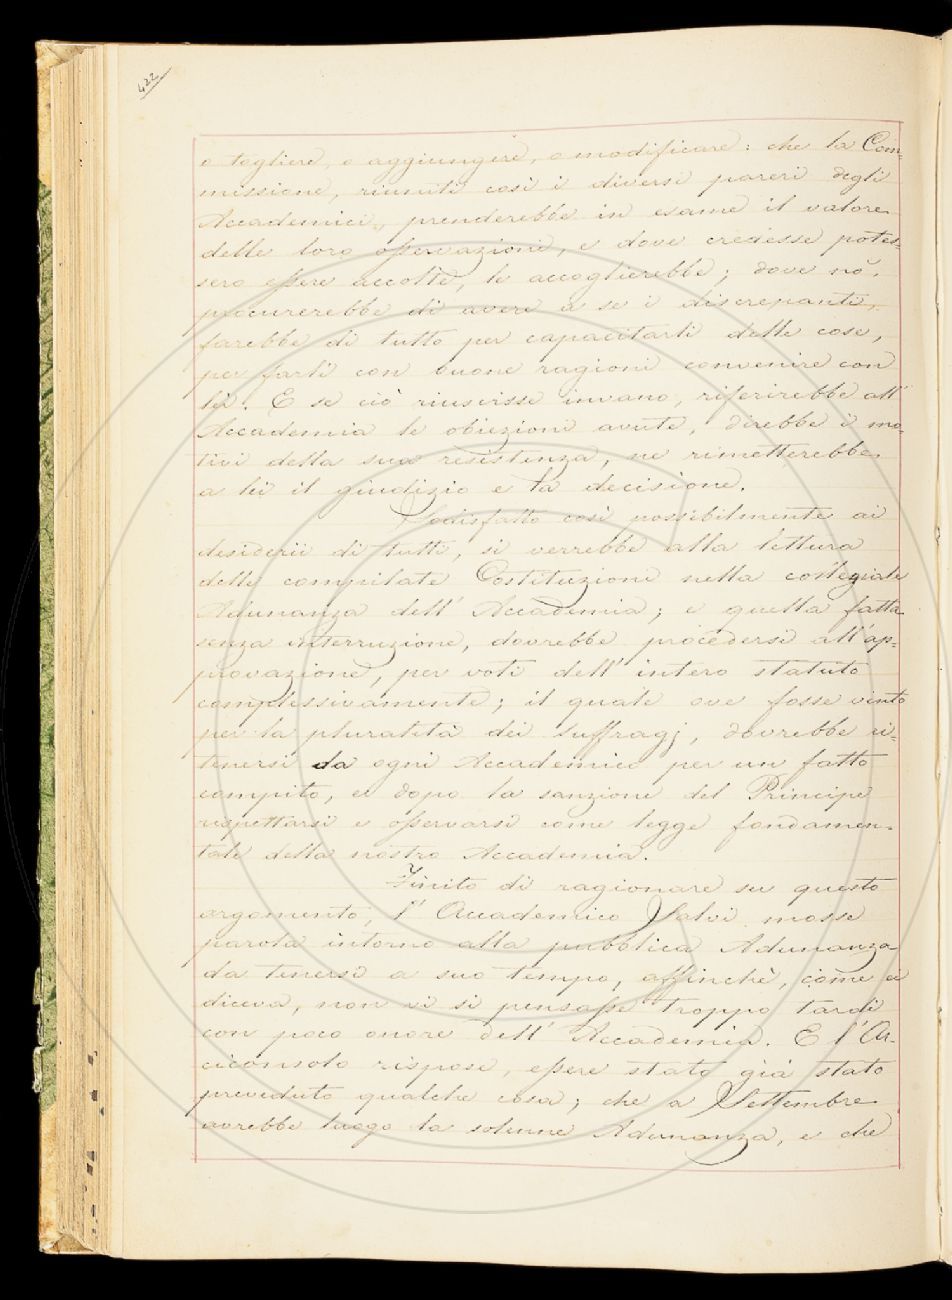 422
o togliere, o aggiungere, o modificare: che la Com=
missione, riuniti così i diversi pareri degli
Accademici, prenderebbe in esame il valore
delle loro osservazioni, e dove credesse potes=
sero essere accolte, le accoglierebbe; dove nò,
procurerebbe di avere a se i discrepanti,
farebbe di tutto per capacitarli delle cose,
per farli con buone ragioni convenire con
lei. E se ciò riuscisse invano, riferirebbe all'
Accademia le obiezioni avute, direbbe i mo=
tivi della sua resistenza, ne rimetterebbe
a lei il giudizio e la decisione.
Sodisfatto così possibilmente ai
desiderii di tutti, si verrebbe alla lettura
delle compilate Costituzioni nella collegiale
Adunanza dell'Accademia; e quella fatta
senza interruzione, dovrebbe procedersi all'ap=
provazione, per voti dell'intero statuto
complessivamente; il quale ove fosse vinto
per la pluralità dei suffragj, dovrebbe ri=
tenersi da ogni Accademico per un fatto
compito, e dopo la sanzione del Principe
rispettarsi e osservarsi come legge fondamen=
tale della nostra Accademia.
Finito di ragionare su questo
argomento, l'Accademico Salvi mosse
parola intorno alla pubblica Adunanza
da tenersi a suo tempo, affinchè, come ei
diceva, non vi si pensasse troppo tardi
con poco onore dell'Accademia. E l'Ar=
ciconsolo rispose, essere stato già stato
preveduto qualche cosa; che a Settembre
avrebbe luogo la solenne Adunanza, e che